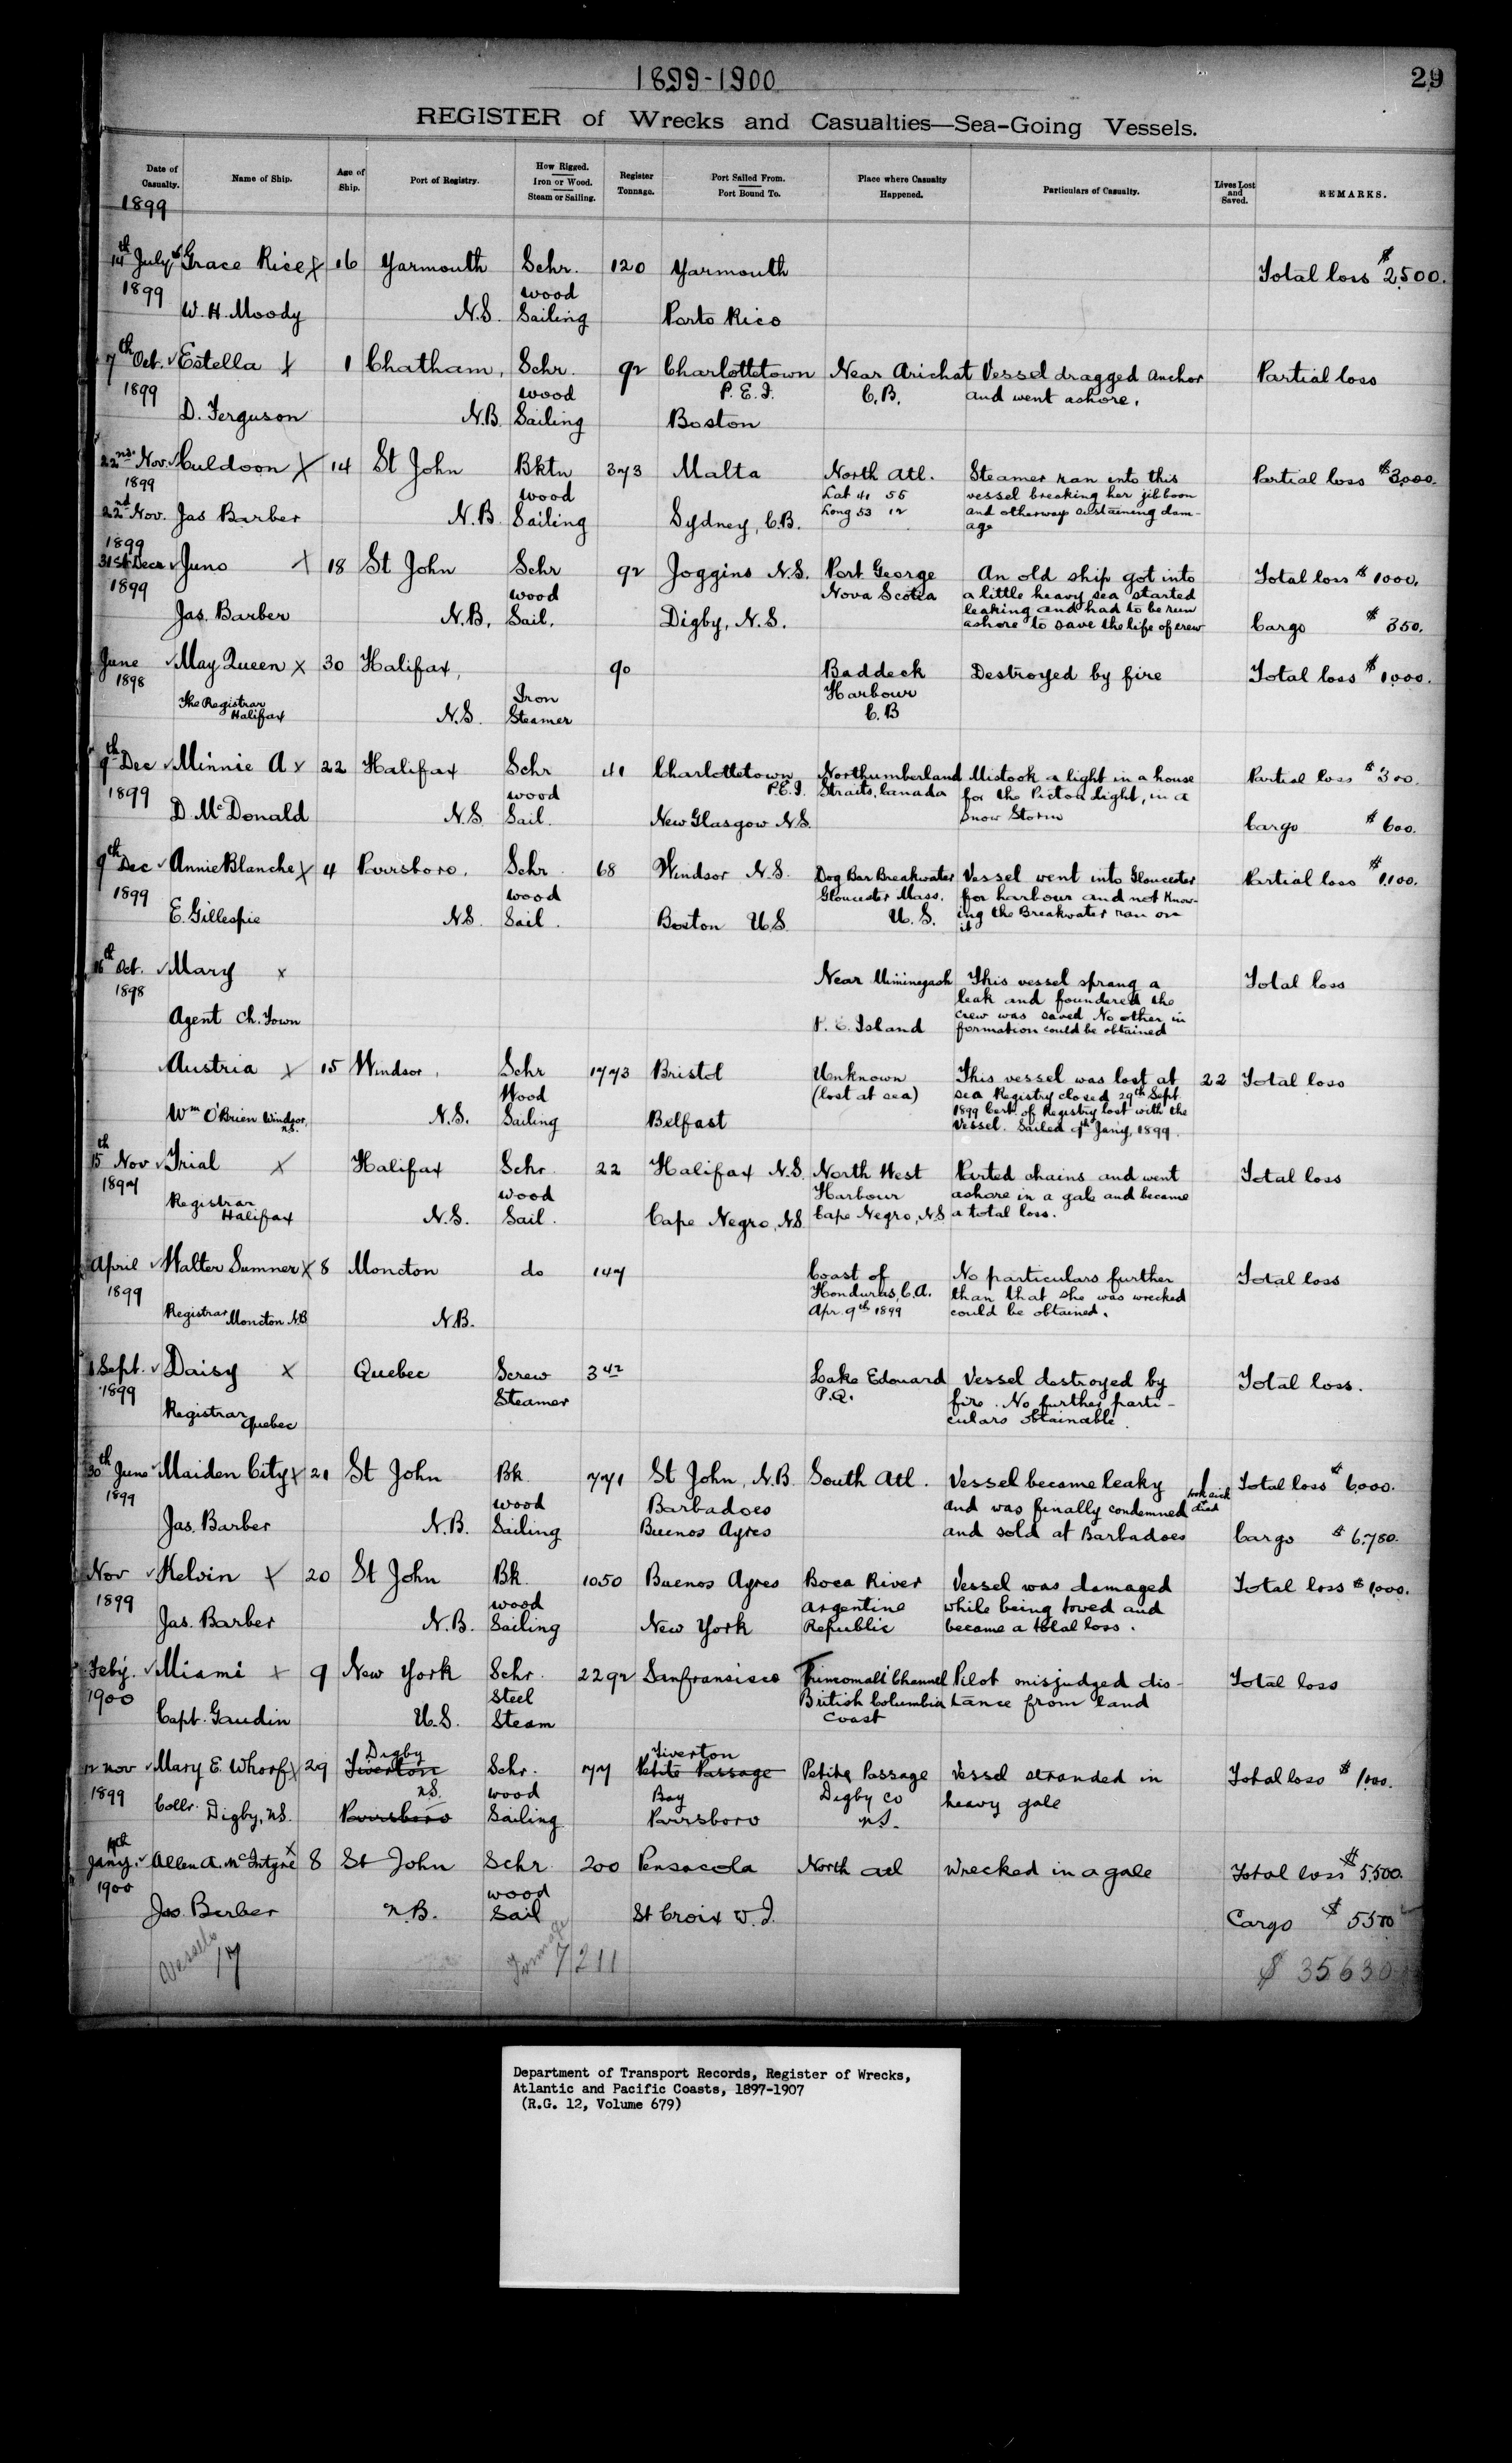 1899-1900
29
REGISTER of Wrecks and Casualties—Sea-Going Vessels.
Date of Casualty. Name of Ship. Age of Ship. Port of Registry. How Rigged. Iron or Wood. Steam or Sailing. Register Tonnage. Port Sailed From. Port Bound To. Place where Casualty Happened. Particulars of Casualty. Lives Lost and Saved. REMARKS.
1899
14th July Grace Rice x 16 Yarmouth Schr. 120 Yarmouth Total loss $2,500.
1899 wood
W. H. Moody N.S. Sailing Porto Rico
7th Oct. Estella x 1 Chatham, Schr. 92 Charlottetown Near Arichat Vessel dragged Anchor Partial loss
1899 wood P.E.I. C.B. and went ashore.
D. Ferguson N.B. Sailing Boston
22nd Nov. Culdoon x 14 St John Bktn 373 Malta North Atl. Steamer ran into this Partial loss $3,000.
1899 wood Lat 41 55 vessel breaking her jibboon
22nd Nov. Jas Barber N.B. Sailing Sydney, C.B. Long 53 12 and otherways sustaining dam-
1899 age
31st Decr Juno x 18 St John Schr 92 Joggins N.S. Port George An old ship got into Total loss $1000.
1899 wood Nova Scotia a little heavy sea started
leaking and had to be run
Jas. Barber N.B. Sail. Digby, N.S. ashore to save the life of crew Cargo $350.
June May Queen x 30 Halifax, 90 Baddeck Destroyed by fire Total loss $1,000.
1898 Iron Harbour
The Registrar Halifax N.S. Steamer C.B
9th Dec Minnie A x 22 Halifax Schr 41 Charlottetown Northumberland Mistook a light in a house Partial loss $300.
1899 wood P.E.I. Straits, Canada for the Pictou Light, in a
D. McDonald N.S. Sail. New Glasgow N.S. Snow Storm Cargo $600.
9th Dec Annie Blanche x 4 Parrsboro. Schr. 68 Windsor N.S. Dog Bar Breakwater Vessel went into Gloucester Partial loss $1,100.
1899 wood Gloucester Mass. for harbour and not Know-
E. Gillespie N.S. Sail. Boston U.S. U.S. ing the Breakwater ran on
it
16th Oct. Mary x Near Miminegash This vessel sprang a Total loss
1898 leak and foundered the
crew was saved No other in
Agent Ch. Town P. E. Island formation could be obtained
Austria x 15 Windsor, Schr 1773 Bristol Unknown This vessel was lost at 22 Total loss
Wood (lost at sea) sea Registry closed 29th Sept.
1899 Cert. of Registry lost with the
Wm O'Brien Windsor, N.S. N.S. Sailing Belfast Vessel. Sailed 9th Jan'y, 1899.
15th Nov Trial x Halifax Schr. 22 Halifax N.S. North West Parted chains and went Total loss
1897 wood Harbour ashore in a gale and became
Registrar Halifax N.S. Sail. Cape Negro, N.S. Cape Negro, N.S. a total loss.
April Walter Sumner x 8 Moncton do 147 Coast of No particulars further Total loss
1899 Honduras, C.A. than that she was wrecked
Registrar Moncton N.B N.B. Apr. 9th 1899 could be obtained.
1 Sept. Daisy x Quebec Screw 342 Lake Edouard Vessel destroyed by Total loss.
1899 Steamer P.Q. fire. No further parti-
Registrar Quebec culars obtainable.
30th June Maiden City x 21 St John Bk. 771 St John, N.B. South Atl. Vessel became leaky 1 Total loss $6,000.
1899 wood Barbadoes and was finally condemned took sick died
Jas. Barber N.B. Sailing Buenos Ayres and sold at Barbadoes Cargo $6,780.
Nov Kelvin x 20 St John Bk. 1050 Buenos Ayres Boca River Vessel was damaged Total loss $1,000.
1899 wood Argentine while being towed and
Jas. Barber N.B. Sailing New York Republic became a total loss.
Feb'y. Miami x 9 New York Schr. 2292 Sanfransisco Trincomali Channel Pilot misjudged dis- Total loss
1900 Steel British Columbia tance from land
Capt. Gaudin U.S. Steam Coast
Digby Tiverton
12 Nov Mary E. Whorf x 29 Tiverton Schr. 77 Petite Passage Petite Passage Vessel stranded in Total loss $1,000.
1899 N.S. wood Bay Digby Co heavy gale
Collr. Digby, N.S. Parrsboro Sailing Parrsboro N.S.
Jany. Allen A. McIntyre x 8 St John Schr 200 Pensacola North Atl Wrecked in a gale Total loss $5,500.
1900 wood
Jas. Barber N.B. Sail St Croix W.I. Cargo $5500
Vessels 17 Tonnage 7211 $35630
Department of Transport Records, Register of Wrecks,
Atlantic and Pacific Coasts, 1897-1907
(R.G. 12, Volume 679)